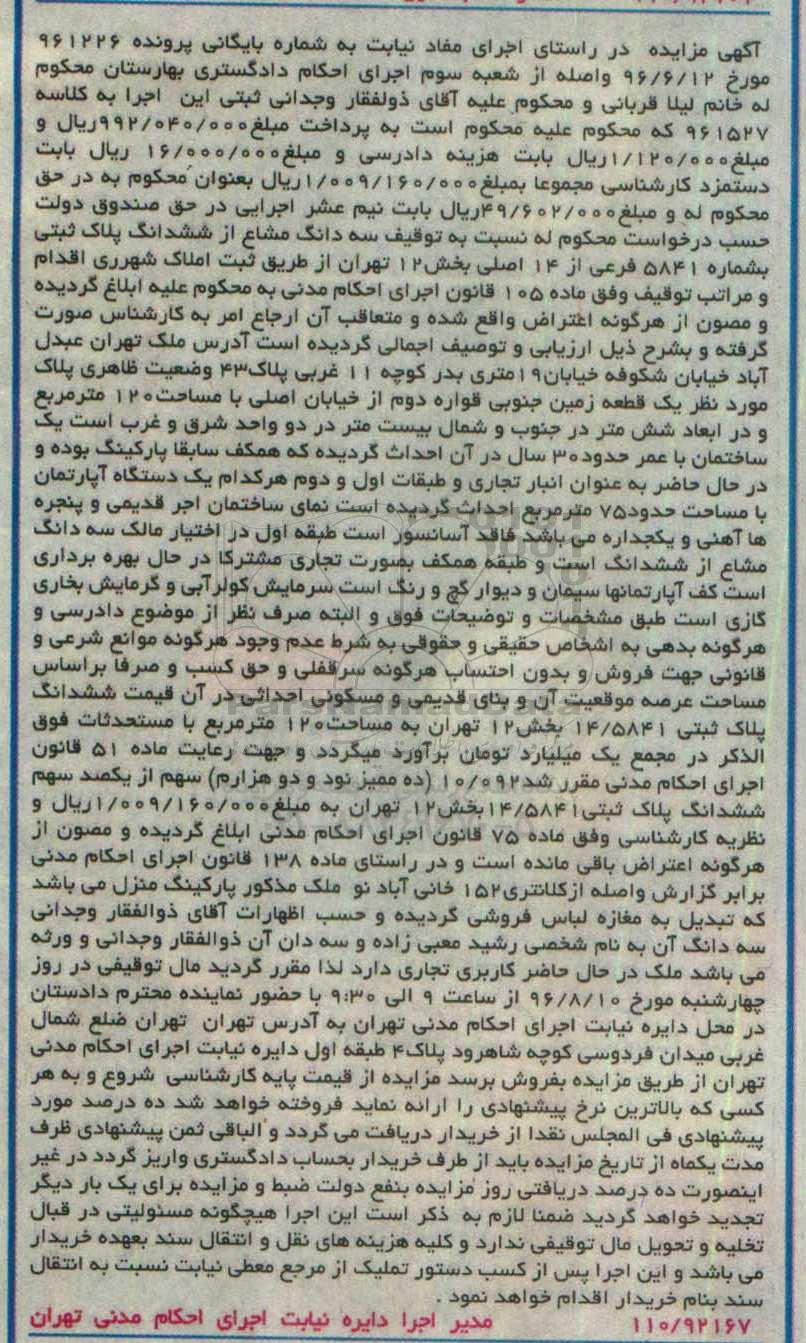 آگهی مزایده در راستای اجرای مفاد نیابت به شماره بایگانی پرونده ۹۶۱۲۲۶
مورخ ۹۶/۶/۱۲ واصله از شعبه سوم اجرای احکام دادگستری بهارستان محکوم
له خانم لیلا قربانی و محکوم علیه آقای ذولفقار وجدانی ثبتی این اجرا به کلاسه
۹۶۱۵۲۷ که محکوم علیه محکوم است به پرداخت مبلغ۹۹۲/۰۴۰/۰۰۰ریال و
مبلغ۱/۱۲۰/۰۰۰ریال بابت هزینه دادرسی و مبلغ۱۶/۰۰۰/۰۰۰ ریال بابت
دستمزد کارشناسی مجموعا بمبلغ۱/۰۰۹/۱۶۰/۰۰۰ریال بعنوان محکوم به در حق
محکوم له و مبلغ۴۹/۶۰۲/۰۰۰ریال بابت نیم عشر اجرایی در حق صندوق دولت
حسب درخواست محکوم له نسبت به توقیف سه دانگ مشاع از ششدانگ پلاک ثبتی
بشماره ۵۸۴۱ فرعی از ۱۴ اصلی بخش۱۲ تهران از طریق ثبت املاک شهرری اقدام
و مراتب توقیف وفق ماده ۱۰۵ قانون اجرای احکام مدنی به محکوم علیه ابلاغ گردیده
و مصون از هرگونه اعتراض واقع شده و متعاقب آن ارجاع امر به کارشناس صورت
گرفته و بشرح ذیل ارزیابی و توصیف اجمالی گردیده است آدرس ملک تهران عبدل
آباد خیابان شکوفه خیابان۱۹متری بدر کوچه ۱۱ غربی پلاک۴۳ وضعیت ظاهری پلاک
مورد نظر یک قطعه زمین جنوبی قواره دوم از خیابان اصلی با مساحت۱۲۰ مترمربع
و در ابعاد شش متر در جنوب و شمال بیست متر در دو واحد شرق و غرب است یک
ساختمان با عمر حدود۳۰ سال در آن احداث گردیده که همکف سابقا پارکینگ بوده و
در حال حاضر به عنوان انبار تجاری و طبقات اول و دوم هرکدام یک دستگاه آپارتمان
با مساحت حدود۷۵ مترمربع احداث گردیده است نمای ساختمان اجر قدیمی و پنجره
ها آهنی و یکجداره می باشد فاقد آسانسور است طبقه اول در اختیار مالک سه دانگ
مشاع از ششدانگ است و طبقه همکف بصورت تجاری مشترکا در حال بهره برداری
است کف آپارتمانها سیمان و دیوار گچ و رنگ است سرمایش کولرآبی و گرمایش بخاری
گازی است طبق مشخصات و توضیحات فوق و البته صرف نظر از موضوع دادرسی و
هرگونه بدهی به اشخاص حقیقی و حقوقی به شرط عدم وجود هرگونه موانع شرعی و
قانونی جهت فروش و بدون احتساب هرگونه سرقفلی و حق کسب و صرفا براساس
مساحت عرصه موقعیت آن و بنای قدیمی و مسکونی احداثی در آن قیمت ششدانگ
پلاک ثبتی ۱۴/۵۸۴۱ بخش۱۲ تهران به مساحت۱۲۰ مترمربع با مستحدثات فوق
الذکر در مجمع یک میلیارد تومان برآورد میگردد و جهت رعایت ماده ۵۱ قانون
اجرای احکام مدنی مقرر شد۱۰/۰۹۲ (ده ممیز نود و دو هزارم) سهم از یکصد سهم
ششدانگ پلاک ثبتی۱۴/۵۸۴۱بخش۱۲ تهران به مبلغ۱/۰۰۹/۱۶۰/۰۰۰ریال و
نظریه کارشناسی وفق ماده ۷۵ قانون اجرای احکام مدنی ابلاغ گردیده و مصون از
هرگونه اعتراض باقی مانده است و در راستای ماده ۱۳۸ قانون اجرای احکام مدنی
برابر گزارش واصله ازکلانتری۱۵۲ خانی آباد نو ملک مذکور پارکینگ منزل می باشد
که تبدیل به مغازه لباس فروشی گردیده و حسب اظهارات آقای ذوالفقار وجدانی
سه دانگ آن به نام شخصی رشید معبی زاده و سه دان آن ذوالفقار وجدانی و ورثه
می باشد ملک در حال حاضر کاربری تجاری دارد لذا مقرر گردید مال توقیفی در روز
چهارشنبه مورخ ۹۶/۸/۱۰ از ساعت ۹ الی ۹:۳۰ با حضور نماینده محترم دادستان
در محل دایره نیابت اجرای احکام مدنی تهران به آدرس تهران تهران ضلع شمال
غربی میدان فردوسی کوچه شاهرود پلاک۴ طبقه اول دایره نیابت اجرای احکام مدنی
تهران از طریق مزایده بفروش برسد مزایده از قیمت پایه کارشناسی شروع و به هر
کسی که بالاترین نرخ پیشنهادی را ارائه نماید فروخته خواهد شد ده درصد مورد
پیشنهادی فی المجلس نقدا از خریدار دریافت می گردد و الباقی ثمن پیشنهادی ظرف
مدت یکماه از تاریخ مزایده باید از طرف خریدار بحساب دادگستری واریز گردد در غیر
اینصورت ده درصد دریافتی روز مزایده بنفع دولت ضبط و مزایده برای یک بار دیگر
تجدید خواهد گردید ضمنا لازم به ذکر است این اجرا هیچگونه مسئولیتی در قبال
تخلیه و تحویل مال توقیفی ندارد و کلیه هزینه های نقل و انتقال سند بعهده خریدار
می باشد و این اجرا پس از کسب دستور تملیک از مرجع معطی نیابت نسبت به انتقال
سند بنام خریدار اقدام خواهد نمود .
۱۱۰/۹۲۱۶۷ مدیر اجرا دایره نیابت اجرای احکام مدنی تهران